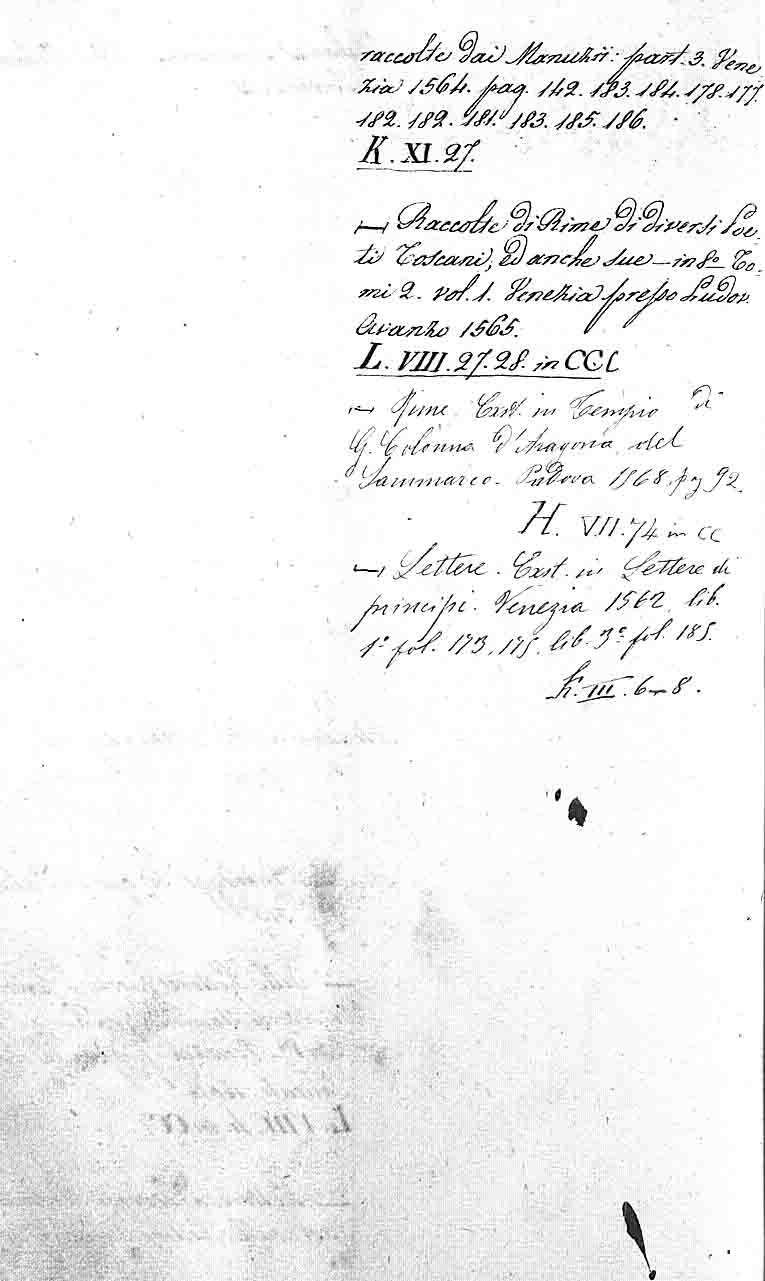 raccolte dai Manuzii: part. 3. Vene
zia 1564. pag. 142. 183. 184. 178. 177.
182. 182. 181. 183. 185. 186.
K. XI. 27.
— Raccolte di Rime di diversi Poe-
ti Toscani, ed anche sue — in 8º To-
mi 2. vol. 1. Venezia presso Ludov.
Avanzo 1565.
L. VIII. 27. 28. in CCC
— Rime. Exst. in Tempio di
G. Colonna d'Aragona del
Sammarco. Padova 1568. pg 92.
H. VII. 74 in CC
— Lettere. Exst. in Lettere di
principi. Venezia 1562. lib.
1º fol. 173, 175. lib. 3º fol. 185.
K. III. 6-8.